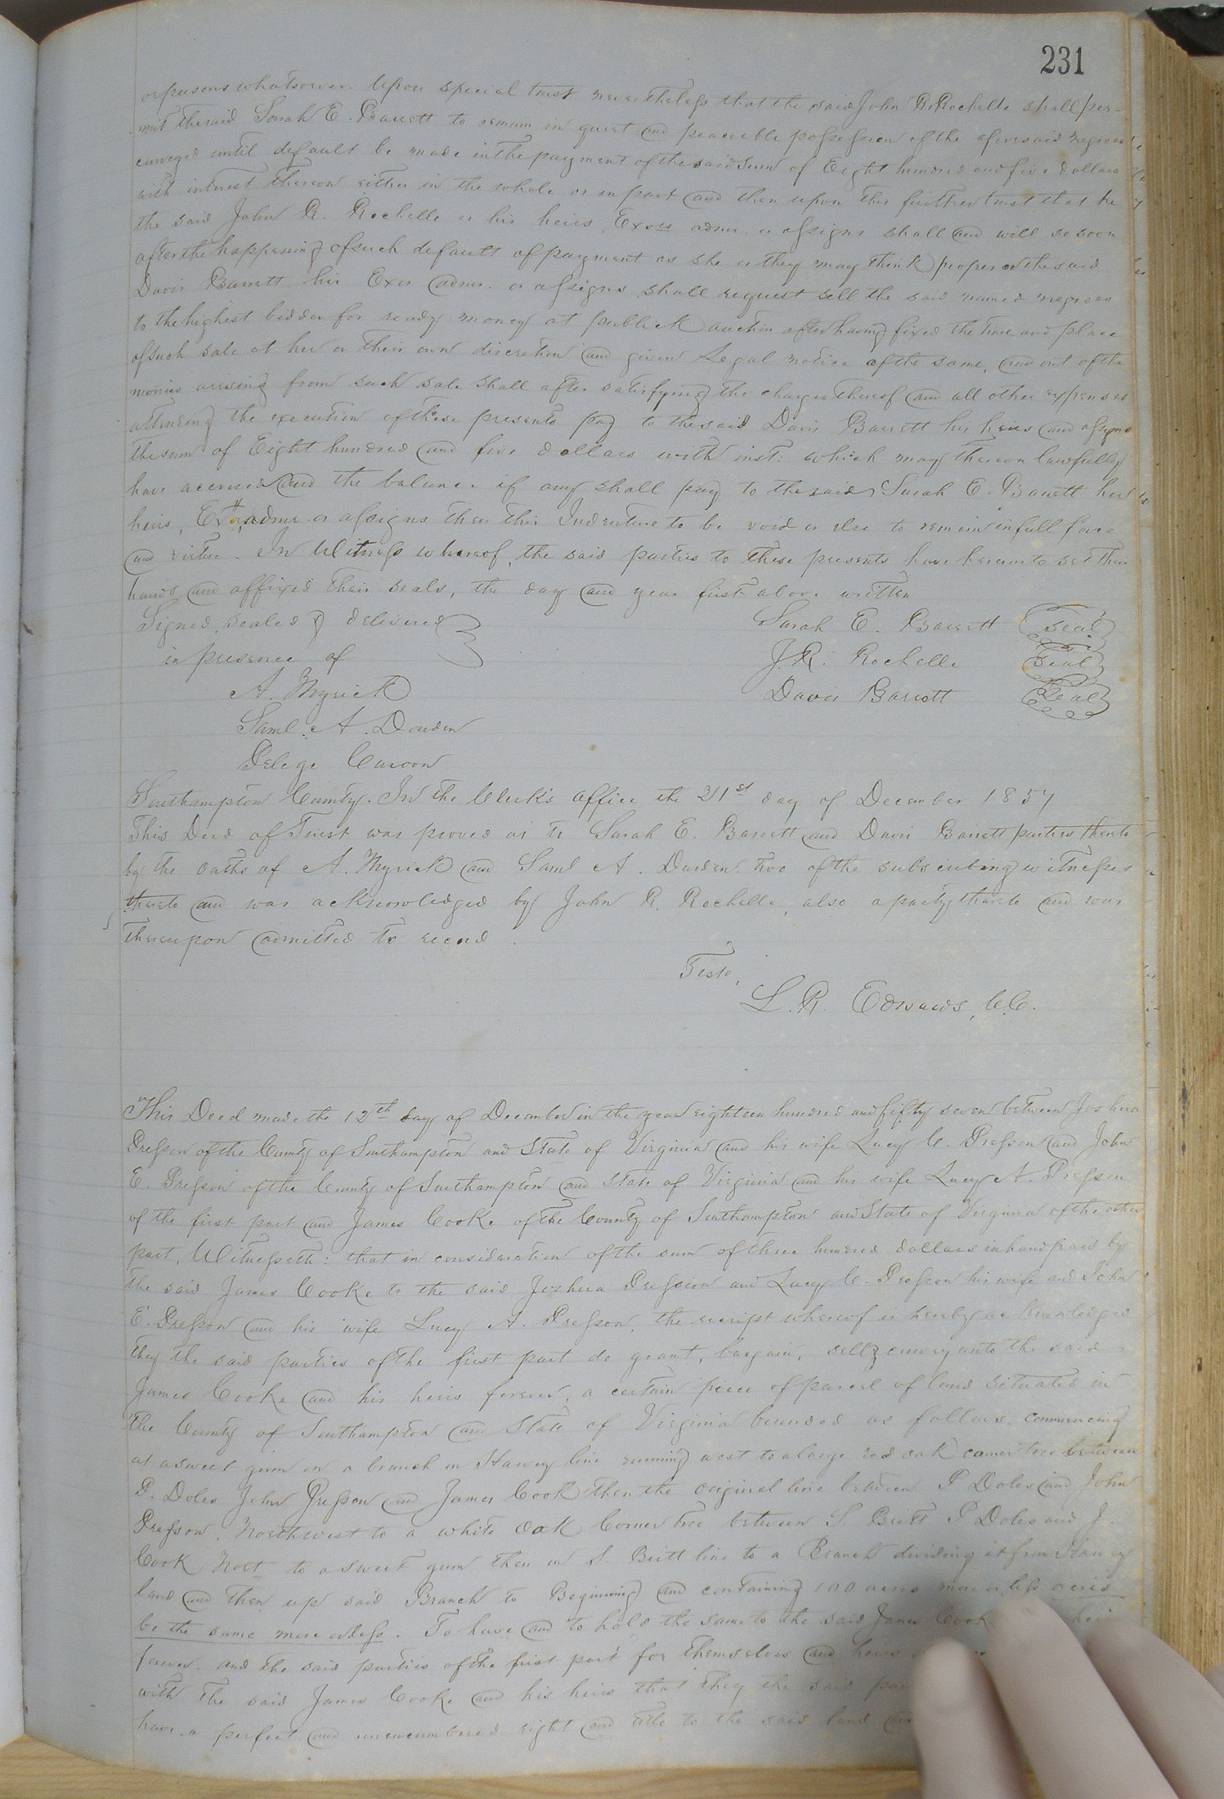 231
or persons whatsoever. Upon special trust nevertheless that the said John R. Rochelle shall per-
mit the said Sarah E. Barrett to remain in quiet and peaceable possession of the aforesaid negroes
conveyed until default be made in the payment of the said sum of Eight hundred and five dollars
with interest thereon either in the whole or in part and then upon this further trust that he
the said John R. Rochelle or his heirs, Exors admr. or assigns shall and will so soon
after the happening of such default of payment as she or they may think proper or the said
Davis Barrett his Exer admr. or assigns shall request sell the said named negroes
to the highest bidder for ready money at publick auction after having fixed the time and place
of such sale at her or their own discretion and given Legal notice of the same, and out of the
monies arising from such sale shall after satisfying the charges thereof and all other expenses
attending the execution of these presents pay to the said Davis Barrett his heirs and assigns
the sum of Eight hundred and five dollars with inst: which may thereon lawfully
have accrued and the balance if any shall pay to the said Sarah E. Barrett her
heirs, Exr admr or assigns then this Indenture to be void or else to remain in full force
and virtue. In Witness whereof, the said parties to these presents have hereunto set their
hands and affixed their seals, the day and year first above written
Signed, sealed & delivered
in presence of
Sarah E. Barrett Seal
J. R. Rochelle Seal
Davis Barrett Seal
A. Myrick
Saml. A. Dowden
Delege Caroon
Southampton County. In the Clerk's office the 21st day of December 1857
This Deed of Trust was proved as to Sarah E. Barrett and Davis Barrett parties thereto
by the oaths of A. Myrick and Saml A. Durden two of the subscribing witnesses
thereto and was acknowledged by John R. Rochelle, also a party thereto and was
thereupon admitted to record.
Teste,
L. R. Edwards, C.C.
This Deed made the 12th day of December in the year eighteen hundred and fifty seven between Joshua
Presson of the County of Southampton and State of Virginia and his wife Lucy C. Presson and John
E. Presson of the County of Southampton and State of Virginia and his wife Lucy A. Presson
of the first part and James Cooke of the County of Southampton and State of Virginia of the other
part, Witnesseth: that in consideration of the sum of three hundred dollars in hand paid by
the said James Cooke to the said Joshua Presson and Lucy C. Presson his wife and John
E. Presson and his wife Lucy A. Presson, the receipt whereof is hereby acknowledged
they the said parties of the first part do grant, bargain, sell & convey unto the said
James Cooke and his heirs forever, a certain piece of parcel of land situated in
the County of Southampton and State of Virginia bounded as follows, commencing
at a sweet gum in a branch in Harvey line running west to a large red oak corner tree between
P. Doles John Presson and James Cook then the original line between P Doles and John
Presson, Northwest to a white oak Corner tree between S. Britt P Doles and J.
Cook Nort to a sweet gum then in S. Britt line to a Branch dividing it from Harvey
land and then up said Branch to Beginning and containing 100 acres more or less acres
be the same more or less. To have and to hold the same to the said James Cook heirs
forever. and the said parties of the first part for themselves and heirs
with the said James Cooke and his heirs that they the said
have a perfect and unencumbered right and title to the said land